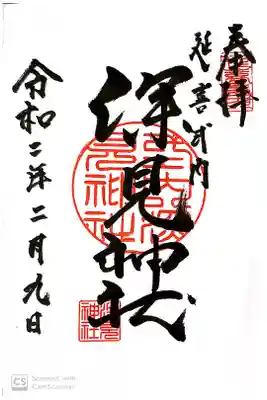 奉拝
延喜式内
深見神社
令和二年二月九日
CS Scanned with
CamScanner